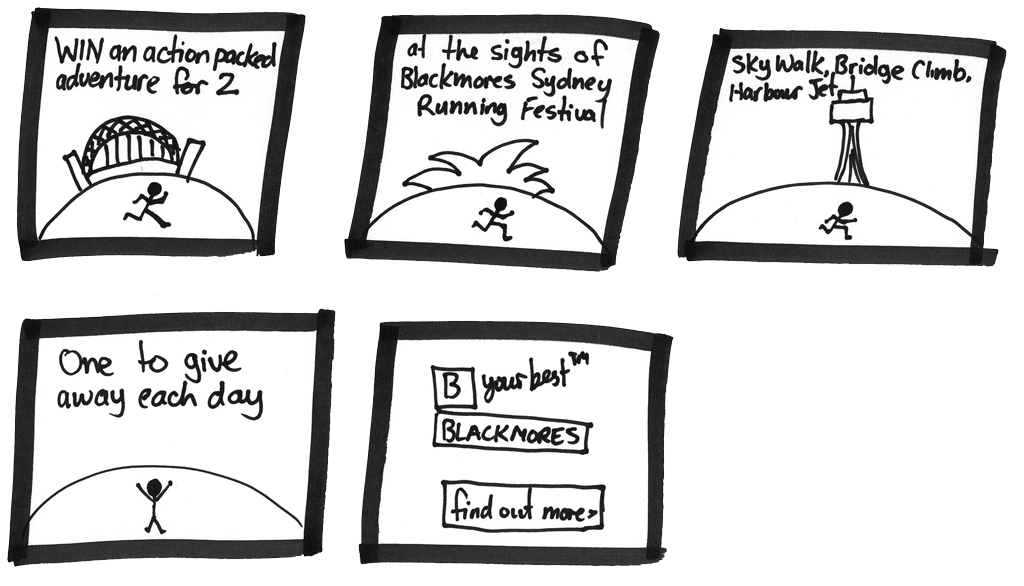 WIN an action packed
adventure for 2
at the sights of
Blackmores Sydney
Running Festival
Sky Walk, Bridge Climb,
Harbour Jet
One to give
away each day
B your best™
BLACKMORES
find out more>